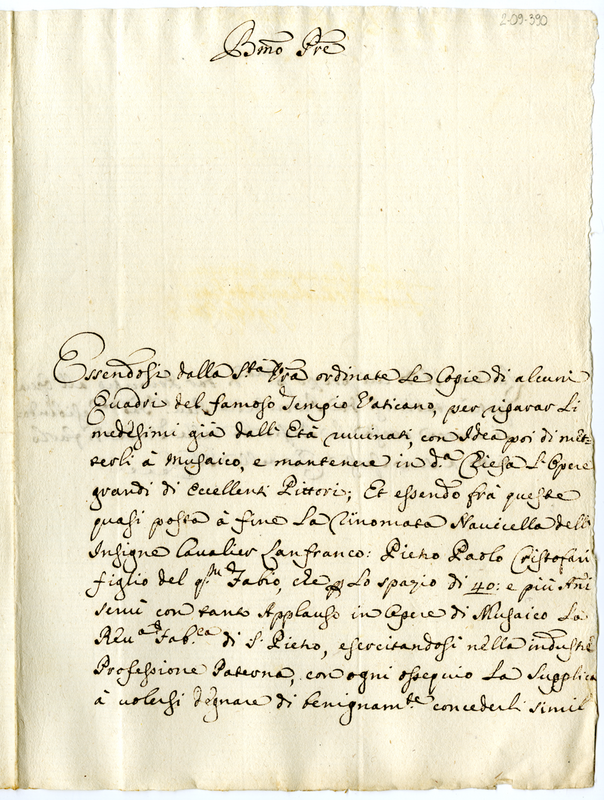 2-09-390
Bmo Pre
Essendosi dalla Sta Vra ordinate Le Copie di alcuni
Quadri del famoso Tempio Vaticano, per riparar Li
medesimi già dall' Età ruvinati, con Idea poi di met-
terli à Musaico, e mantenere in da Chiesa L'Opere
grandi di eccellenti Pittori; Et essendo frà queste
quasi posta à fine La rinomata Navicella dell'
Insigne Cavalier Lanfranco: Pietro Paolo Cristofari
figlio del qm Fabio, che p Lo spazio di 40: e più Ani
servì con tanto Applauso in Opere di Musaico La
Reva Fabca di S. Pietro, esercitandosi nella
Professione Paterna, con ogni ossequio La Supplica
à volersi degnare di benignamte concederli simil